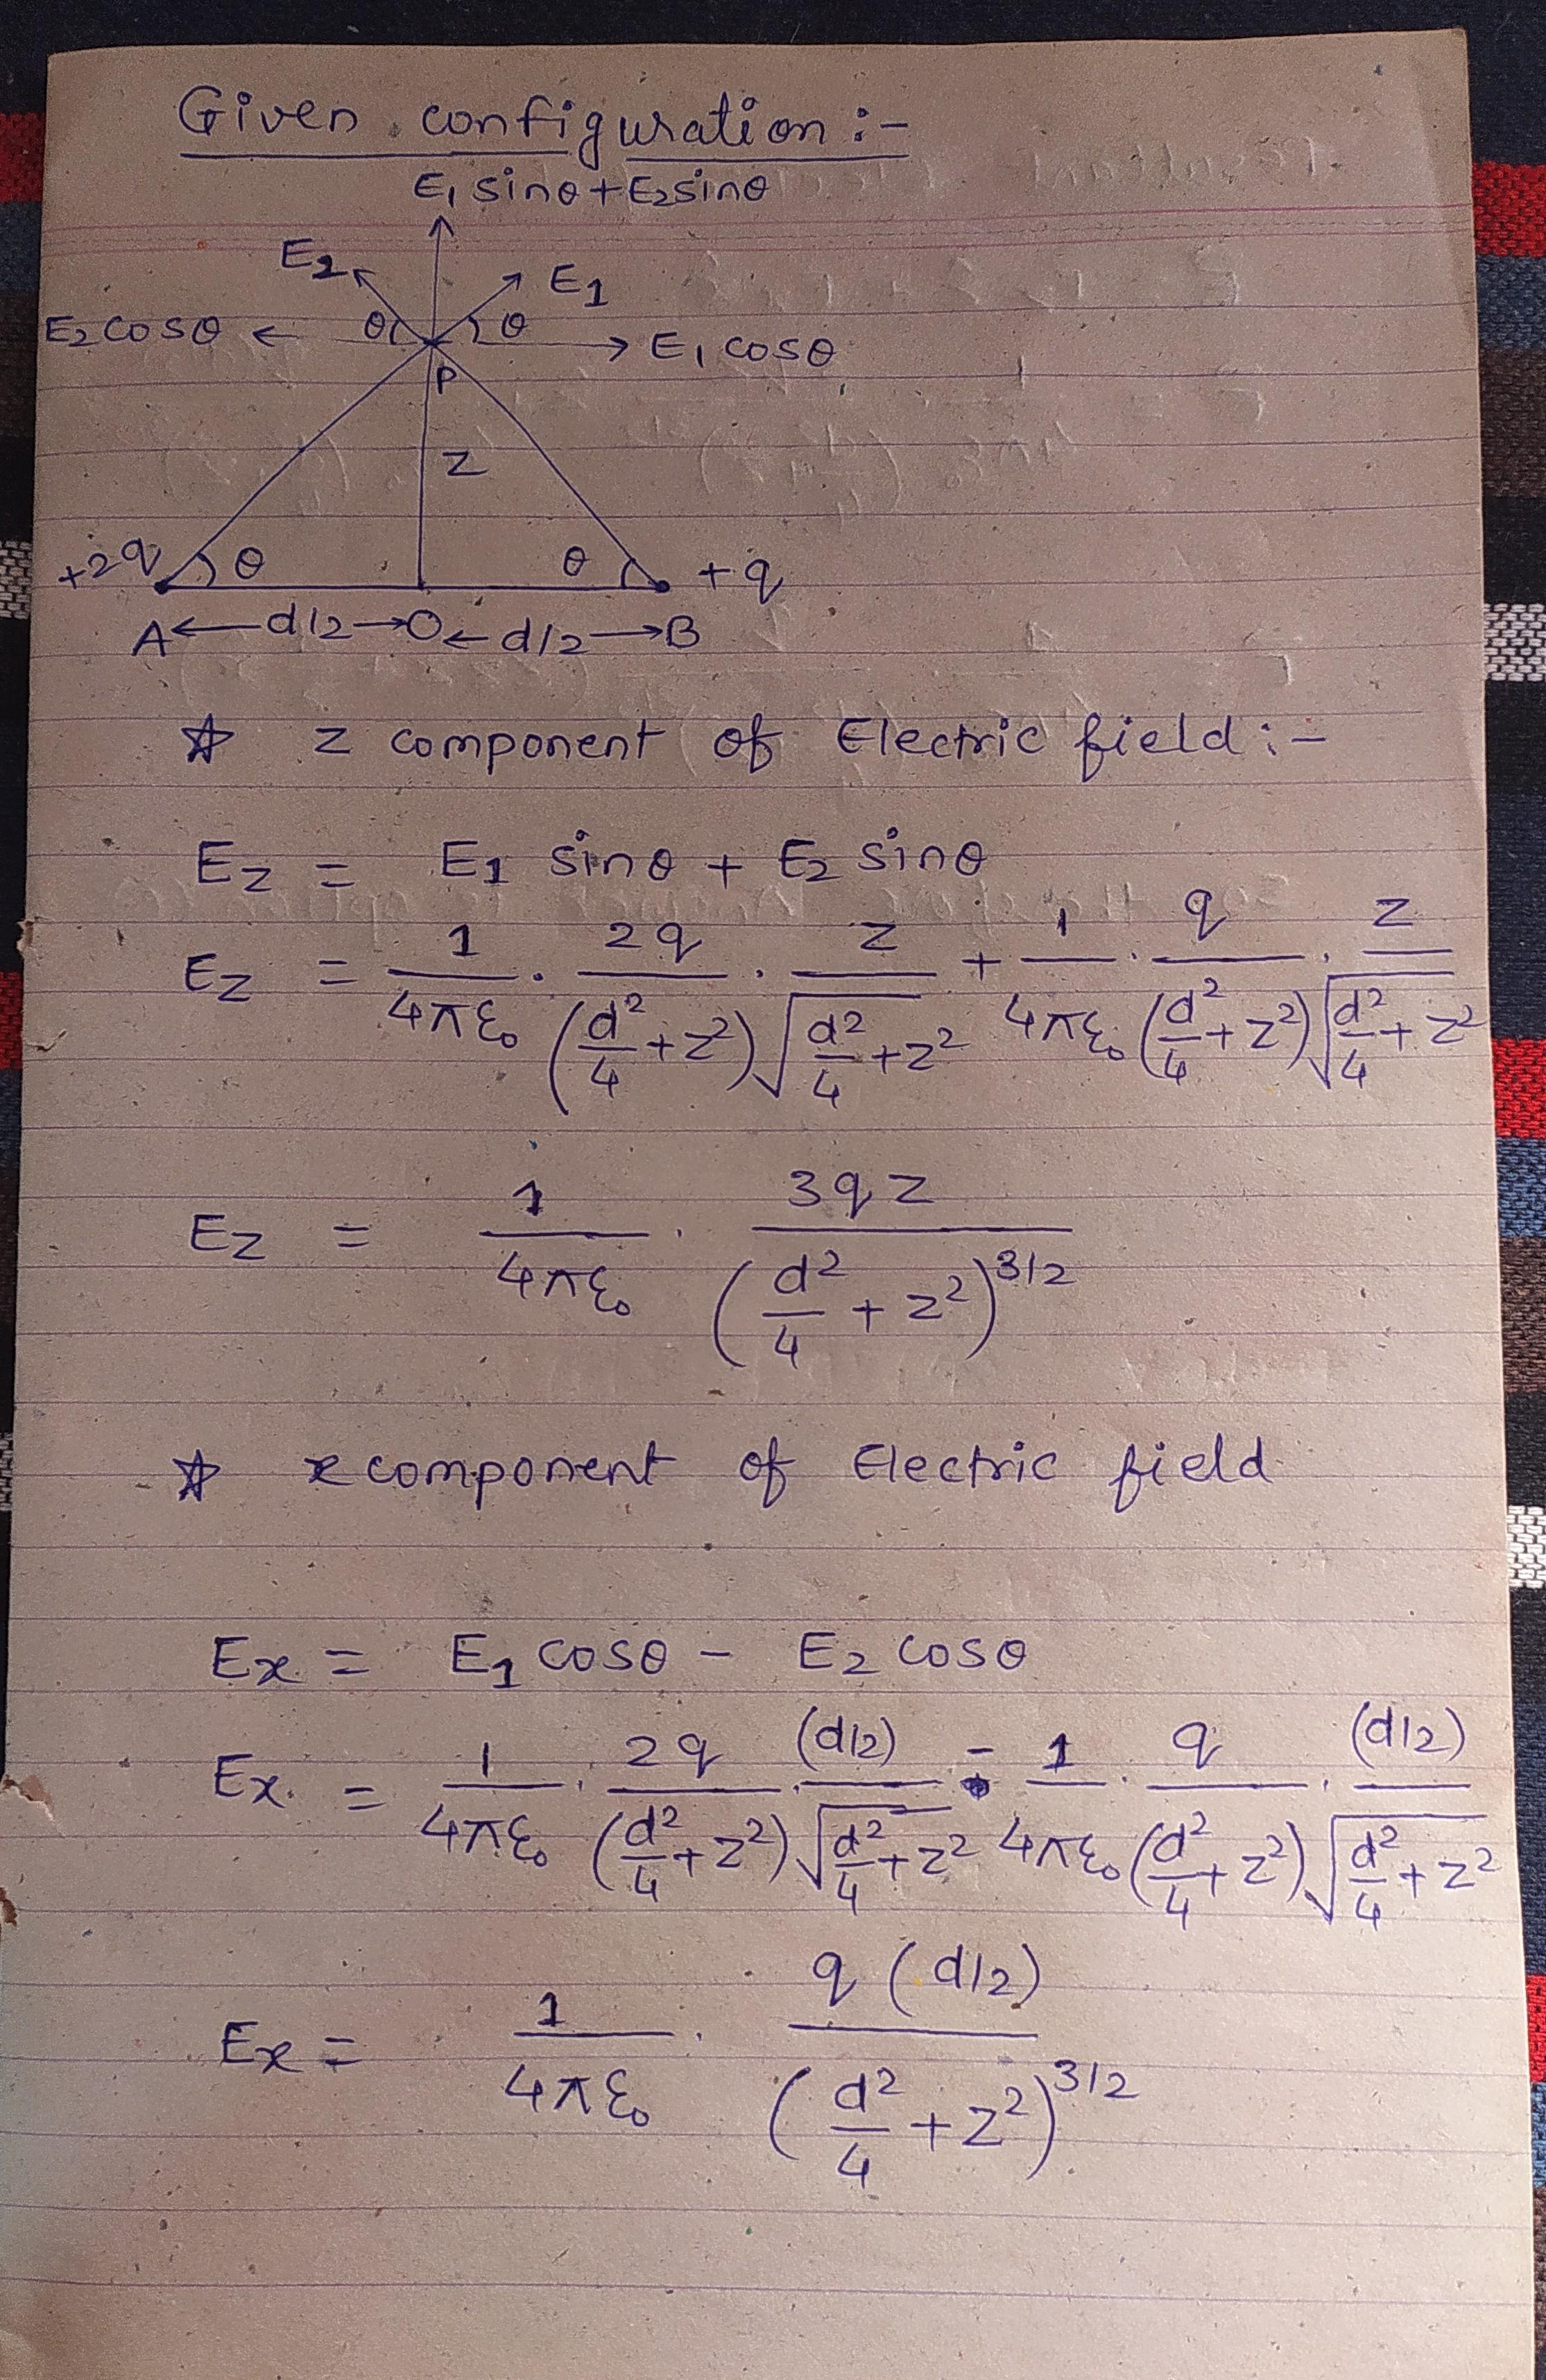 Given configuration :-
E₁ sinθ + E₂ sinθ
E₂ E₁
E₂ cosθ θ θ E₁ cosθ
P
z
+2q θ θ +q
A ←d/2→ O ←d/2→ B
☆ z component of Electric field :-
E_z = E₁ sinθ + E₂ sinθ
E_z = 1/4πε₀ · 2q/(d²/4 + z²) · z/√(d²/4 + z²) + 1/4πε₀ · q/(d²/4 + z²) · z/√(d²/4 + z²)
E_z = 1/4πε₀ · 3qz/(d²/4 + z²)^3/2
☆ x component of Electric field
E_x = E₁ cosθ - E₂ cosθ
E_x = 1/4πε₀ · 2q/(d²/4 + z²) · (d/2)/√(d²/4 + z²) - 1/4πε₀ · q/(d²/4 + z²) · (d/2)/√(d²/4 + z²)
E_x = 1/4πε₀ · q(d/2)/(d²/4 + z²)^3/2